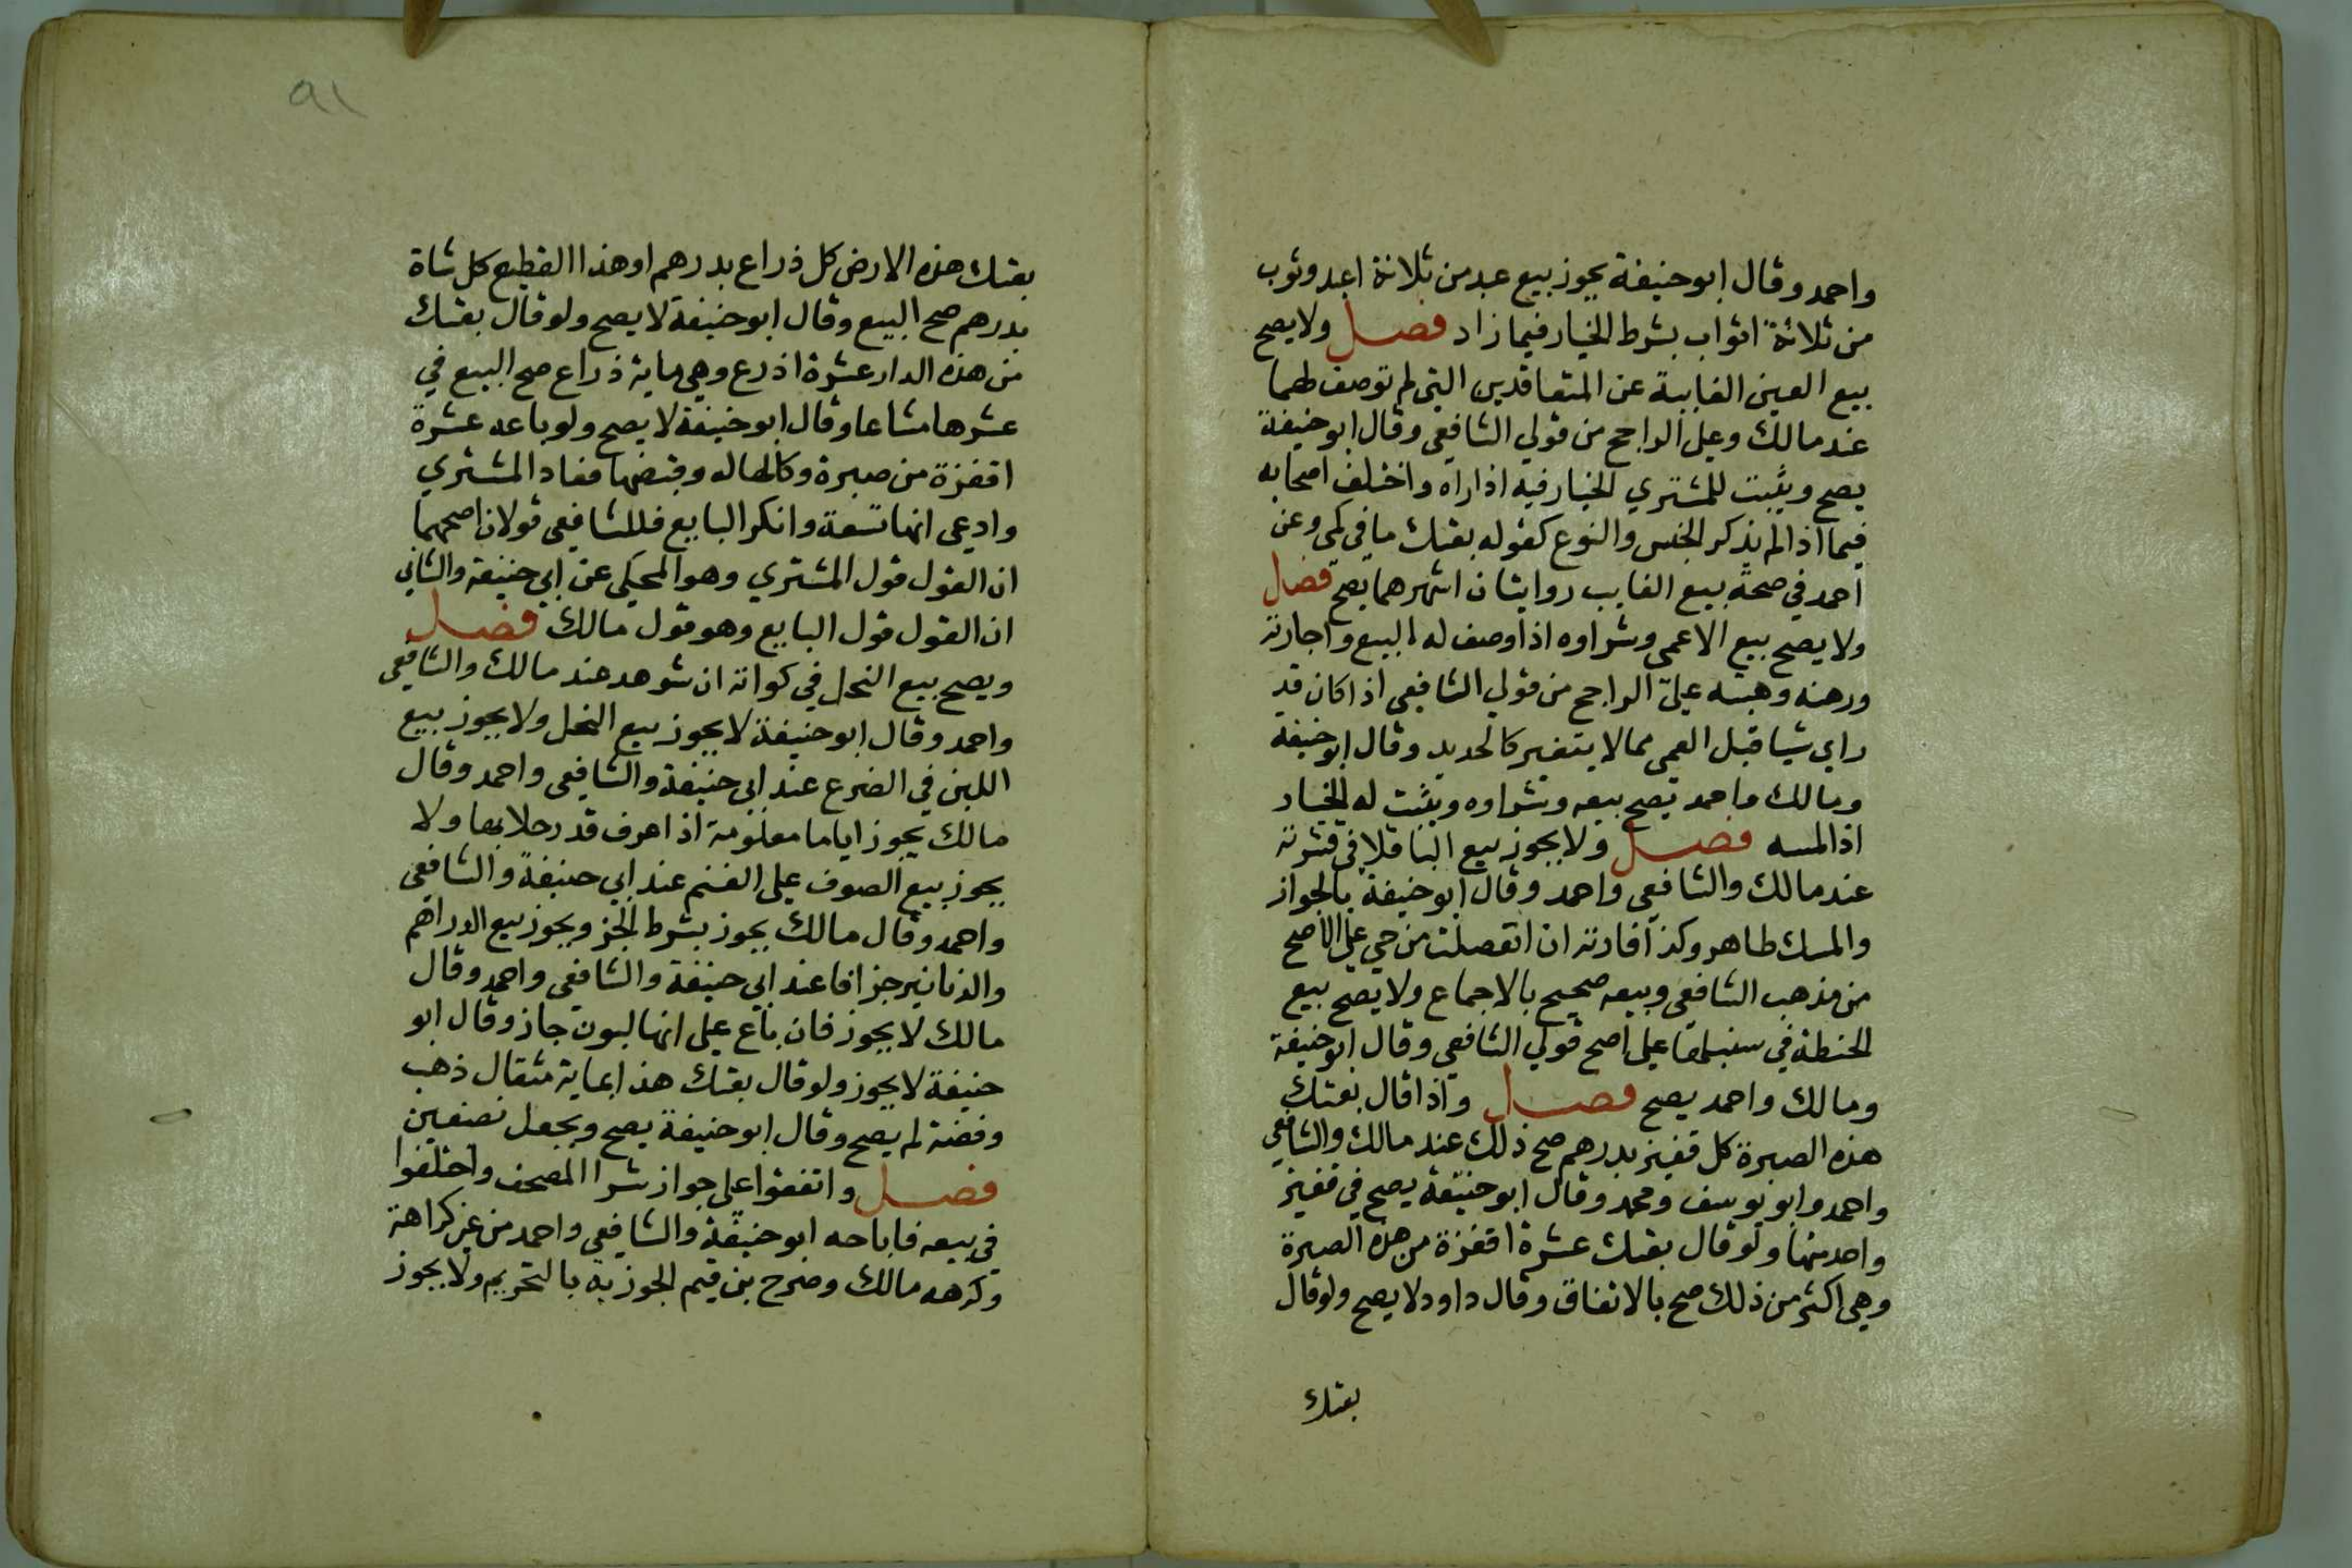 واحمد وقال ابو حنيفة يجوز بيع عبد من ثلاثة اعبد وثوب
من ثلاثة اثواب بشرط الخيار فيما زاد فصل ولا يصح
بيع العين الغايبة عن المتعاقدين التي لم توصف لهما
عند مالك وعلى الراجح من قولي الشافعي وقال ابو حنيفة
يصح ويثبت للمشتري الخيار فيه اذا راه واختلف اصحابه
فيما اذا لم يذكر الجنس والنوع كقوله بعتك ما في كمي وعن
احمد في صحة بيع الغايب روايتان اشهرهما يصح فصل
ولا يصح بيع الاعمى وشراوه اذا وصف له المبيع واجارته
ورهنه وهبته على الراجح من قولي الشافعي اذا كان قد
راي شيا قبل العمى مما لا يتغير كالحديد وقال ابو حنيفة
ومالك واحمد يصح بيعه وشراوه ويثبت له الخيار
اذا لمسه فصل ولا يجوز بيع الباقلا في قشرته
عند مالك والشافعي واحمد وقال ابو حنيفة بالجواز
والمسك طاهر وكذا فارته ان انفصلت من حي على الاصح
من مذهب الشافعي وبيعه صحيح بالاجماع ولا يصح بيع
الحنطة في سنبلها على اصح قولي الشافعي وقال ابو حنيفة
ومالك واحمد يصح فصل واذا قال بعتك
هذه الصبرة كل قفيز بدرهم صح ذلك عند مالك والشافعي
واحمد وابو يوسف ومحمد وقال ابو حنيفة يصح في قفيز
واحد منها ولو قال بعتك عشرة اقفزة من هذه الصبرة
وهي اكثر من ذلك صح بالاتفاق وقال داود لا يصح ولو قال
بعتك
٩١
بعتك هذه الارض كل ذراع بدرهم او هذا القطيع كل شاة
بدرهم صح البيع وقال ابو حنيفة لا يصح ولو قال بعتك
من هذه الدار عشرة اذرع وهي ماية ذراع صح البيع في
عشرها مشاعا وقال ابو حنيفة لا يصح ولو باعه عشرة
اقفزة من صبرة وكالها له وقبضها فعاد المشتري
وادعى انها تسعة وانكر البايع فللشافعي قولان اصحهما
ان القول قول المشتري وهو المحكي عن ابي حنيفة والثاني
ان القول قول البايع وهو قول مالك فصل
ويصح بيع النحل في كواته ان شوهد عند مالك والشافعي
واحمد وقال ابو حنيفة لا يجوز بيع النحل ولا يجوز بيع
اللبن في الضرع عند ابي حنيفة والشافعي واحمد وقال
مالك يجوز اياما معلومة اذا عرف قدر حلابها ولا
يجوز بيع الصوف على الغنم عند ابي حنيفة والشافعي
واحمد وقال مالك يجوز بشرط الجز ويجوز بيع الدراهم
والدنانير جزافا عند ابي حنيفة والشافعي واحمد وقال
مالك لا يجوز فان باع على انها لبون جاز وقال ابو
حنيفة لا يجوز ولو قال بعتك هذا بماية مثقال ذهب
وفضة لم يصح وقال ابو حنيفة يصح ويجعل نصفين
فصل واتفقوا على جواز شرا المصحف واختلفوا
في بيعه فاباحه ابو حنيفة والشافعي واحمد من غير كراهة
وكرهه مالك وصرح بن قيم الجوزيه بالتحريم ولا يجوز